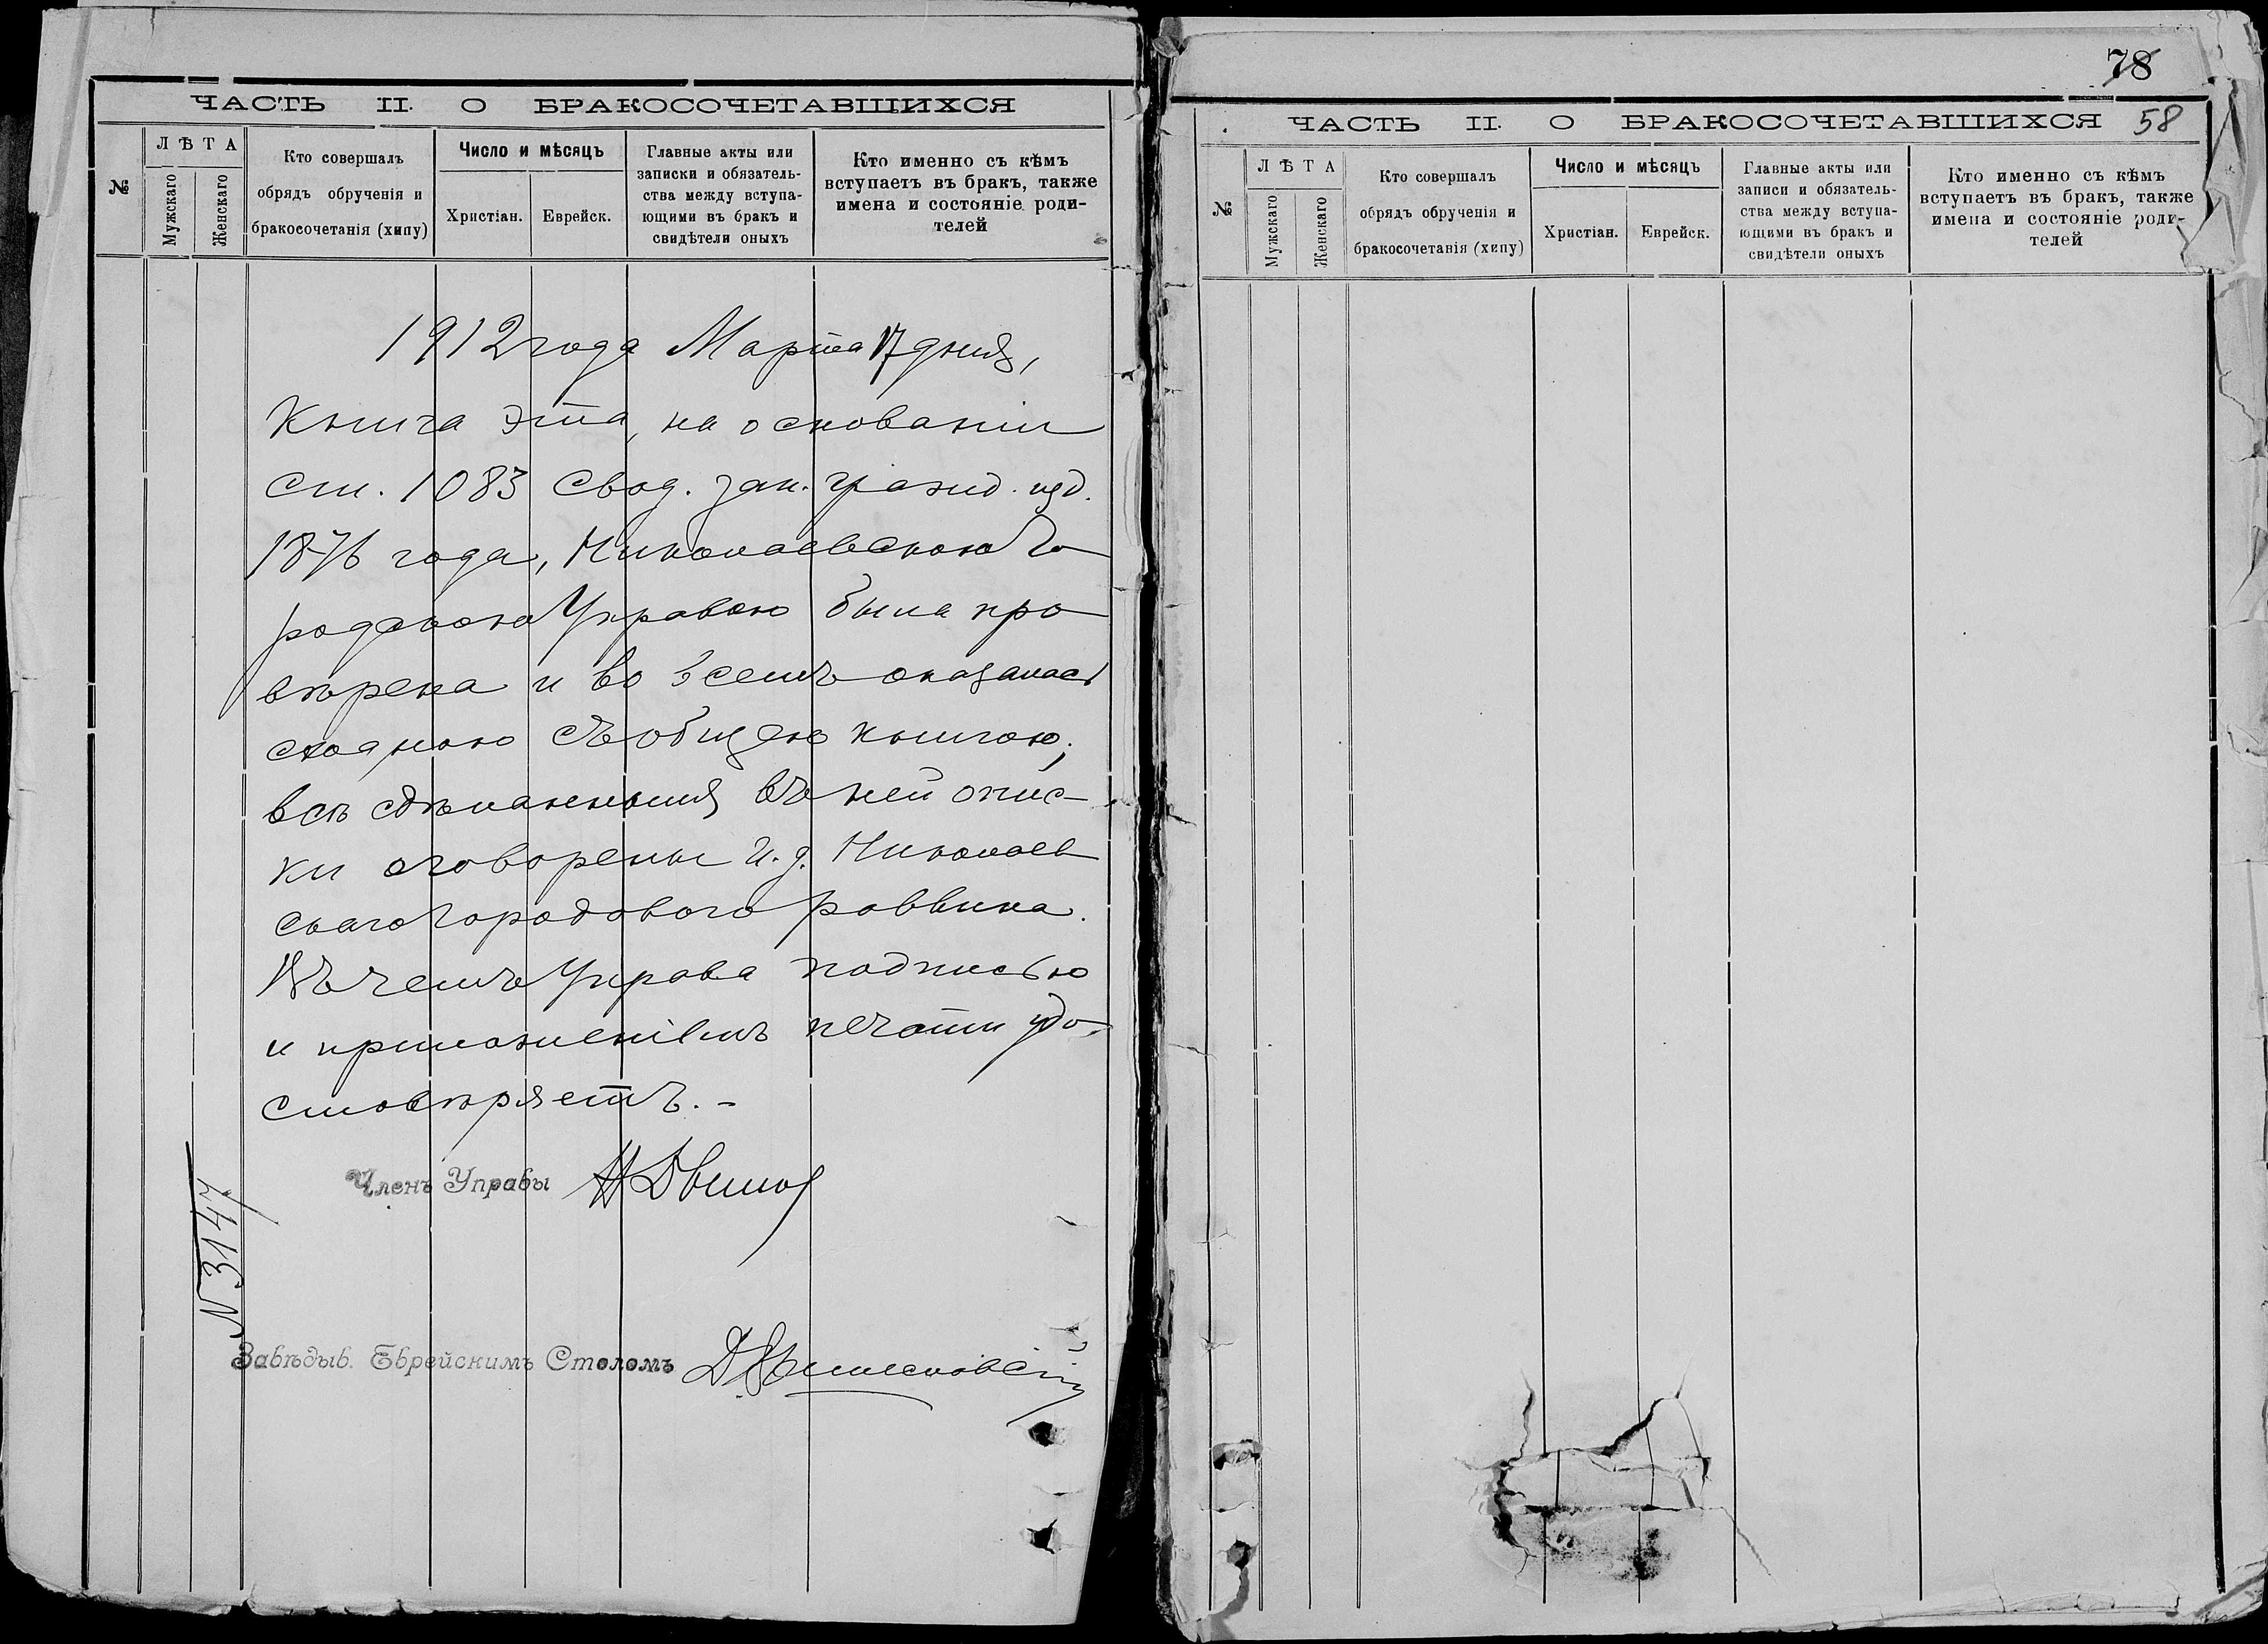 ЧАСТЬ II. О БРАКОСОЧЕТАВШИХСЯ
№
ЛѢТА
Мужскаго
Женскаго
Кто совершалъ
обрядъ обрученія и
бракосочетанія (хипу)
Число и мѣсяцъ
Христіан.
Еврейск.
Главные акты или
записки и обязатель-
ства между вступа-
ющими въ бракъ и
свидѣтели оныхъ
Кто именно съ кѣмъ
вступаетъ въ бракъ, также
имена и состояніе роди-
телей
1912 года Марта 17 дня,
Книга эта, на основаніи
ст. 1083 Свод. зак. гражд. изд.
1876 года, Николаевскою Го-
родскою Управою была про-
вѣрена и во всемъ оказалась
сходною съ общею книгою;
всѣ сдѣланныя въ ней опис-
ки оговорены И. д. Николаев-
скаго городового раввина.
Въ чемъ Управа подписью
и приложеніемъ печати удо-
стовѣряетъ. -
Членъ Управы
№ 3147
Завѣдыв. Еврейскимъ Столомъ
78
58
ЧАСТЬ II. О БРАКОСОЧЕТАВШИХСЯ
№
ЛѢТА
Мужскаго
Женскаго
Кто совершалъ
обрядъ обрученія и
бракосочетанія (хипу)
Число и мѣсяцъ
Христіан.
Еврейск.
Главные акты или
записи и обязатель-
ства между вступа-
ющими въ бракъ и
свидѣтели оныхъ
Кто именно съ кѣмъ
вступаетъ въ бракъ, также
имена и состояніе роди-
телей